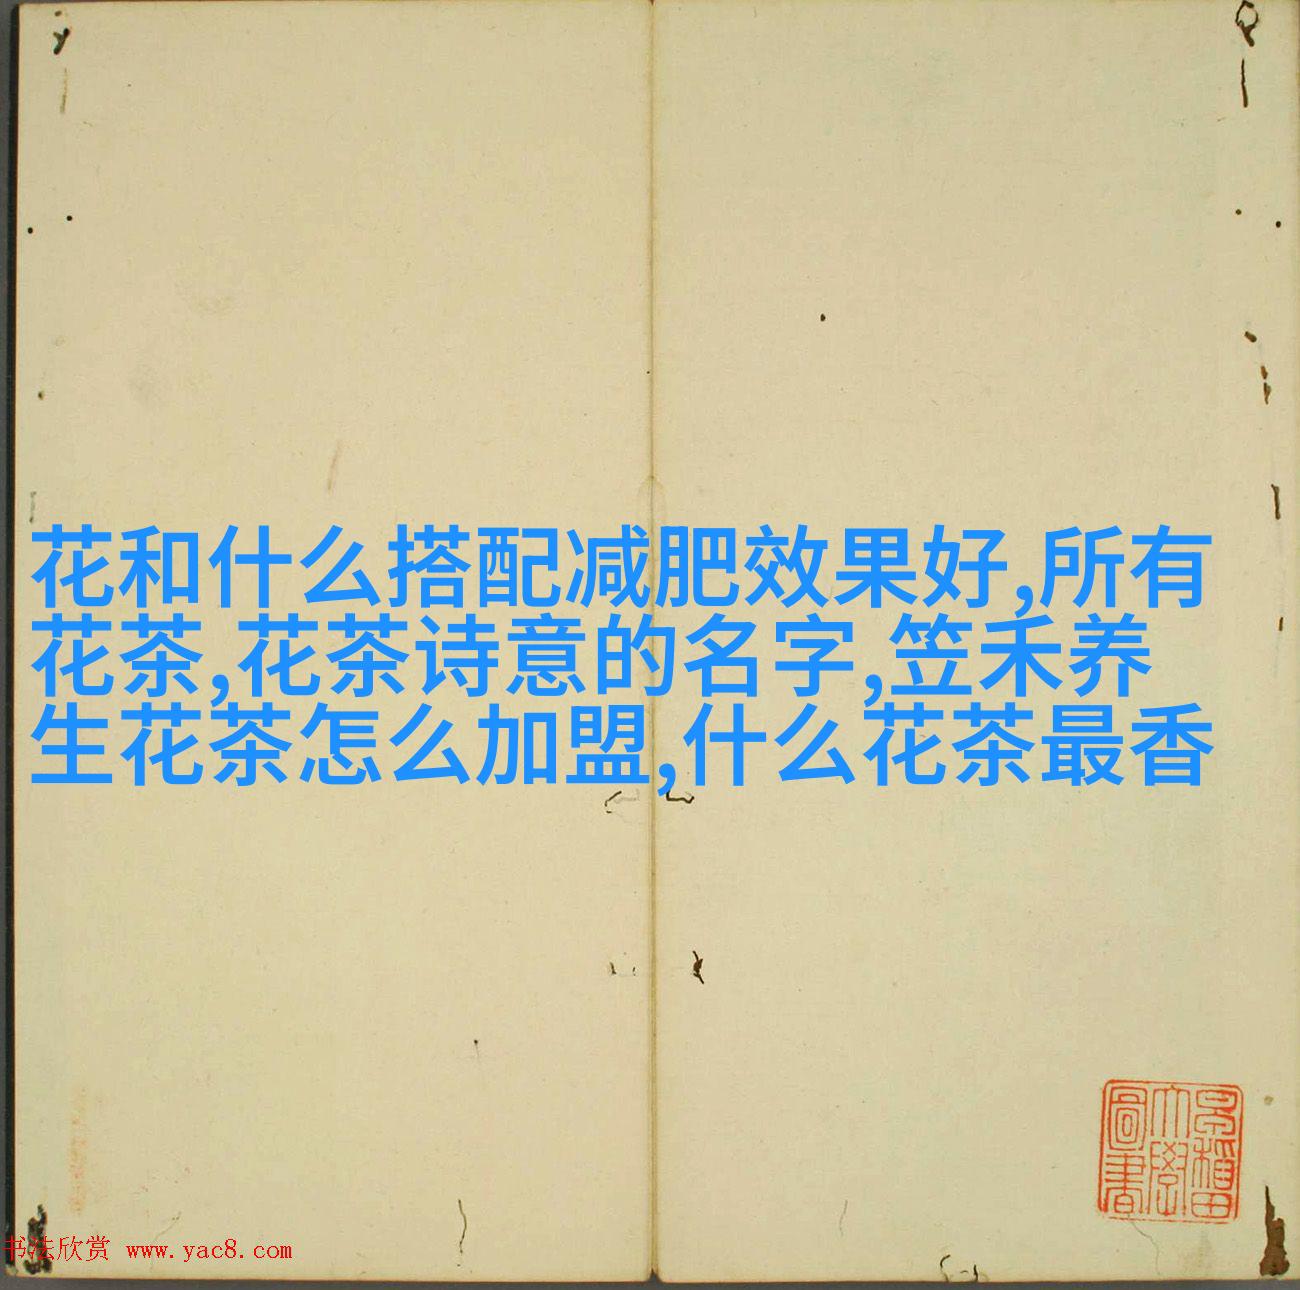 花和什么搭配减肥效果好,所有
花茶,花茶诗意的名字,笠禾养
生花茶怎么加盟,什么花茶最香
早稻田
大學
圖書
书法欣赏 www.yac8.com